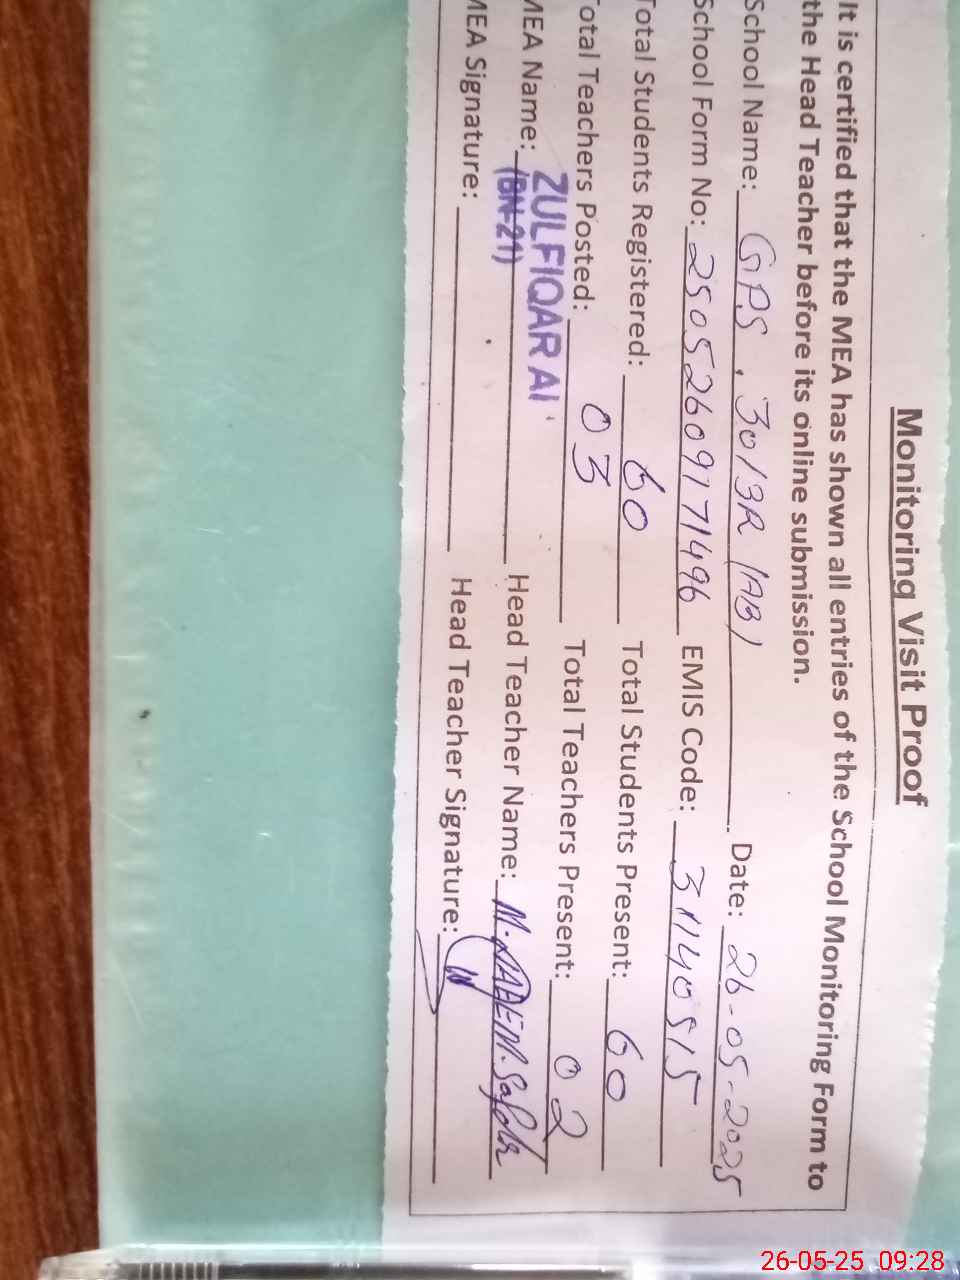 Monitoring Visit Proof
It is certified that the MEA has shown all entries of the School Monitoring Form to
the Head Teacher before its online submission.
School Name: GPS. 30/3R (AB) Date: 26-05-2025
School Form No: 250526097 1496 EMIS Code: 31140515
Total Students Registered: 60 Total Students Present: 60
Total Teachers Posted: 03 Total Teachers Present: 02
MEA Name: ZULFIQAR AI (BN-21) Head Teacher Name: M. NAEEM. Safdar
MEA Signature: Head Teacher Signature:
26-05-25 09:28